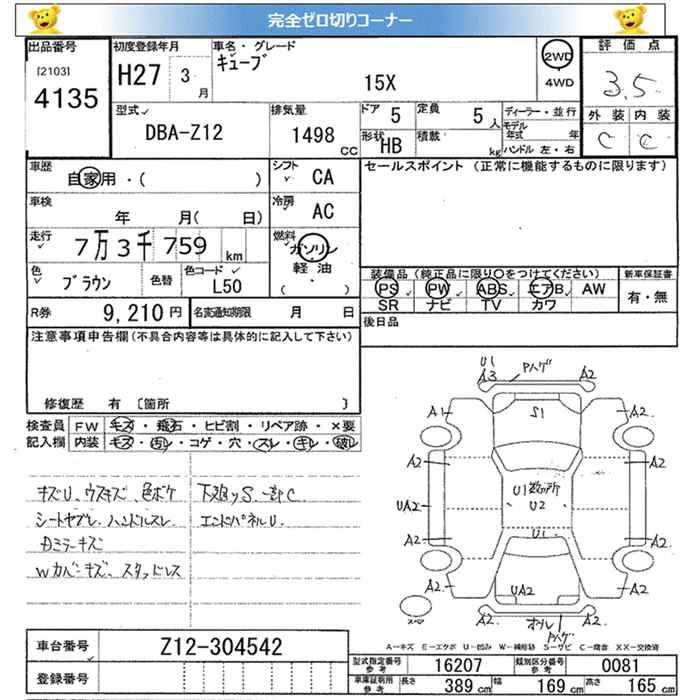 完全ゼロ切りコーナー
出品番号 初度登録年月 車名・グレード 評価点
[2103] H27 3月 キューブ 2WD 3.5
4135 15X 4WD 外装 内装
型式 排気量 ドア 5 定員 5人 ディーラー・並行 C C
DBA-Z12 1498 CC 形状 HB 積載 kg モデル年式 年
ハンドル 左・右
車歴 自家用・( ) シフト CA セールスポイント (正常に機能するものに限ります)
車検 年 月( 日) 冷房 AC
走行 7万3千759 km 燃料 ガソリン
軽油
( . )
色 ブラウン 色替 色コード L50 装備品(純正品に限り○をつけてください) 新車保証書
PS PW ABS エアB AW 有・無
SR ナビ TV カワ
R券 9,210円 名変通知期限 月 日 後日品
注意事項申告欄(不具合内容等は具体的に記入して下さい)
修復歴 有 [箇所 ]
検査員 FW キズ・飛石・ヒビ割・リペア跡・×要
記入欄 内装 キズ・汚レ・コゲ・穴・スレ・キレ・破レ
キズU、ウスキズ、色ボケ 下廻りS、一部C
シートヤブレ、ハンドルスレ エンドパネルU.
カバーキズ、スタッドレス
U1 Pハゲ
A3 A2
A1 S1 A2
A2 A2
UA2 U1 数ヶ所 A2
U2
A2 U1 A2
A2 UA2 A2
A2 A2
Pハゲ
A-キズ E-エクボ U-凹み W-補修跡 S-サビ C-腐食 XX-交換済
車台番号 Z12-304542
登録番号
型式指定番号 参考 16207 類別区分番号 参考 0081
車庫証明用 参考 長さ 389cm 幅 169cm 高さ 165cm